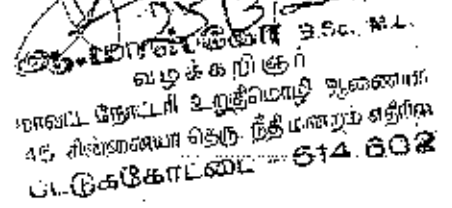 B.Sc., M.L.
வழக்கறிஞர்
மாவட்ட நோட்டரி உறுதிமொழி ஆணையர்
45 தெரு, நீதி மன்றம் எதிரில்
பட்டுக்கோட்டை - 614 602